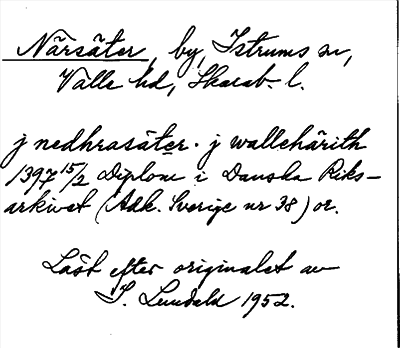 Närsäter, by, Istrums sn,
Valle hd, Skarab. l.
j nedhrasäter. j wallehärith
1397 15/2 Diplom i Danska Riks-
arkivet (Adk. Sverige nr 38) or.
Läst efter originalet av
I. Lundahl 1952.